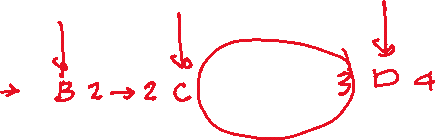 → B 2 → 2 C 3 D 4